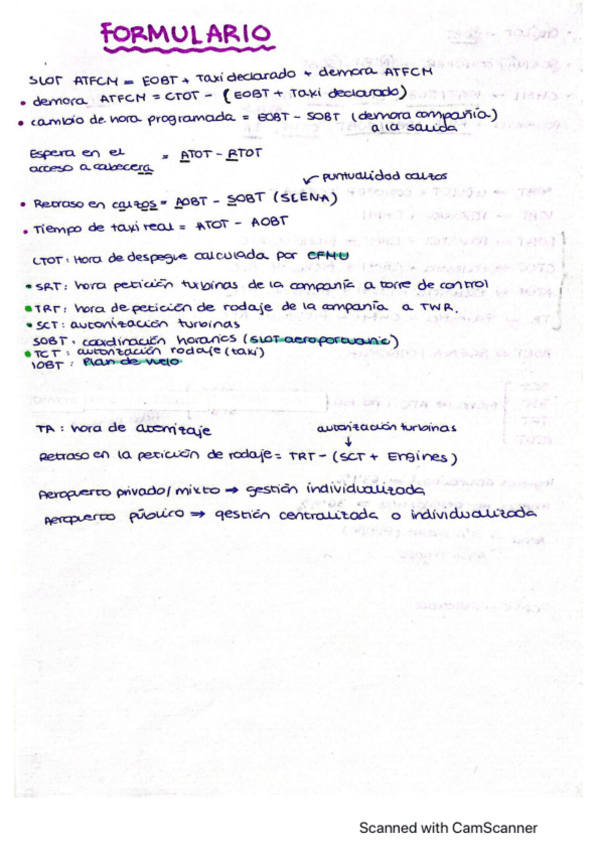 FORMULARIO
SLOT ATFCM = EOBT + Taxi declarado + demora ATFCM
• demora ATFCM = CTOT - (EOBT + Taxi declarado)
• cambio de hora programada = EOBT - SOBT (demora compañía)
a la salida
Espera en el
acceso a cabecera = ATOT - RTOT
puntualidad calzos
• Retraso en calzos = AOBT - SOBT (SLENA)
• Tiempo de taxi real = ATOT - AOBT
CTOT: Hora de despegue calculada por CFMU
• SRT: hora petición turbinas de la compañía a torre de control
• TRT: hora de petición de rodaje de la compañía a TWR.
• SCT: autorización turbinas
SOBT: coordinación horarios (slot aeroportuario)
• TCT: autorización rodaje (taxi)
IOBT: Plan de vuelo
TA: hora de aterrizaje
autorización turbinas
Retraso en la petición de rodaje = TRT - (SCT + Engines)
Aeropuerto privado/mixto → gestión individualizada
Aeropuerto público → gestión centralizada o individualizada
Scanned with CamScanner